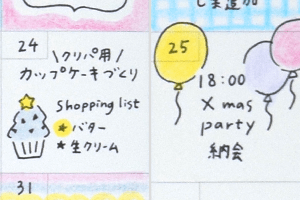 しま追加
24
＼クリパ用／
カップケーキづくり
shopping list
★バター
★生クリーム
25
18:00
Xmas
party
納会
31